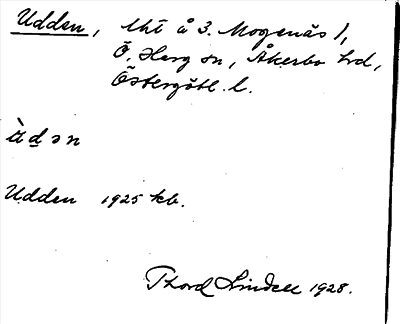 Udden, lht å 3. Mogenäs 1,
Ö. Harg sn, Åkerbo hd,
Östergötl. l.
ùdən
Udden 1925 kb.
Thord Lindell 1928.